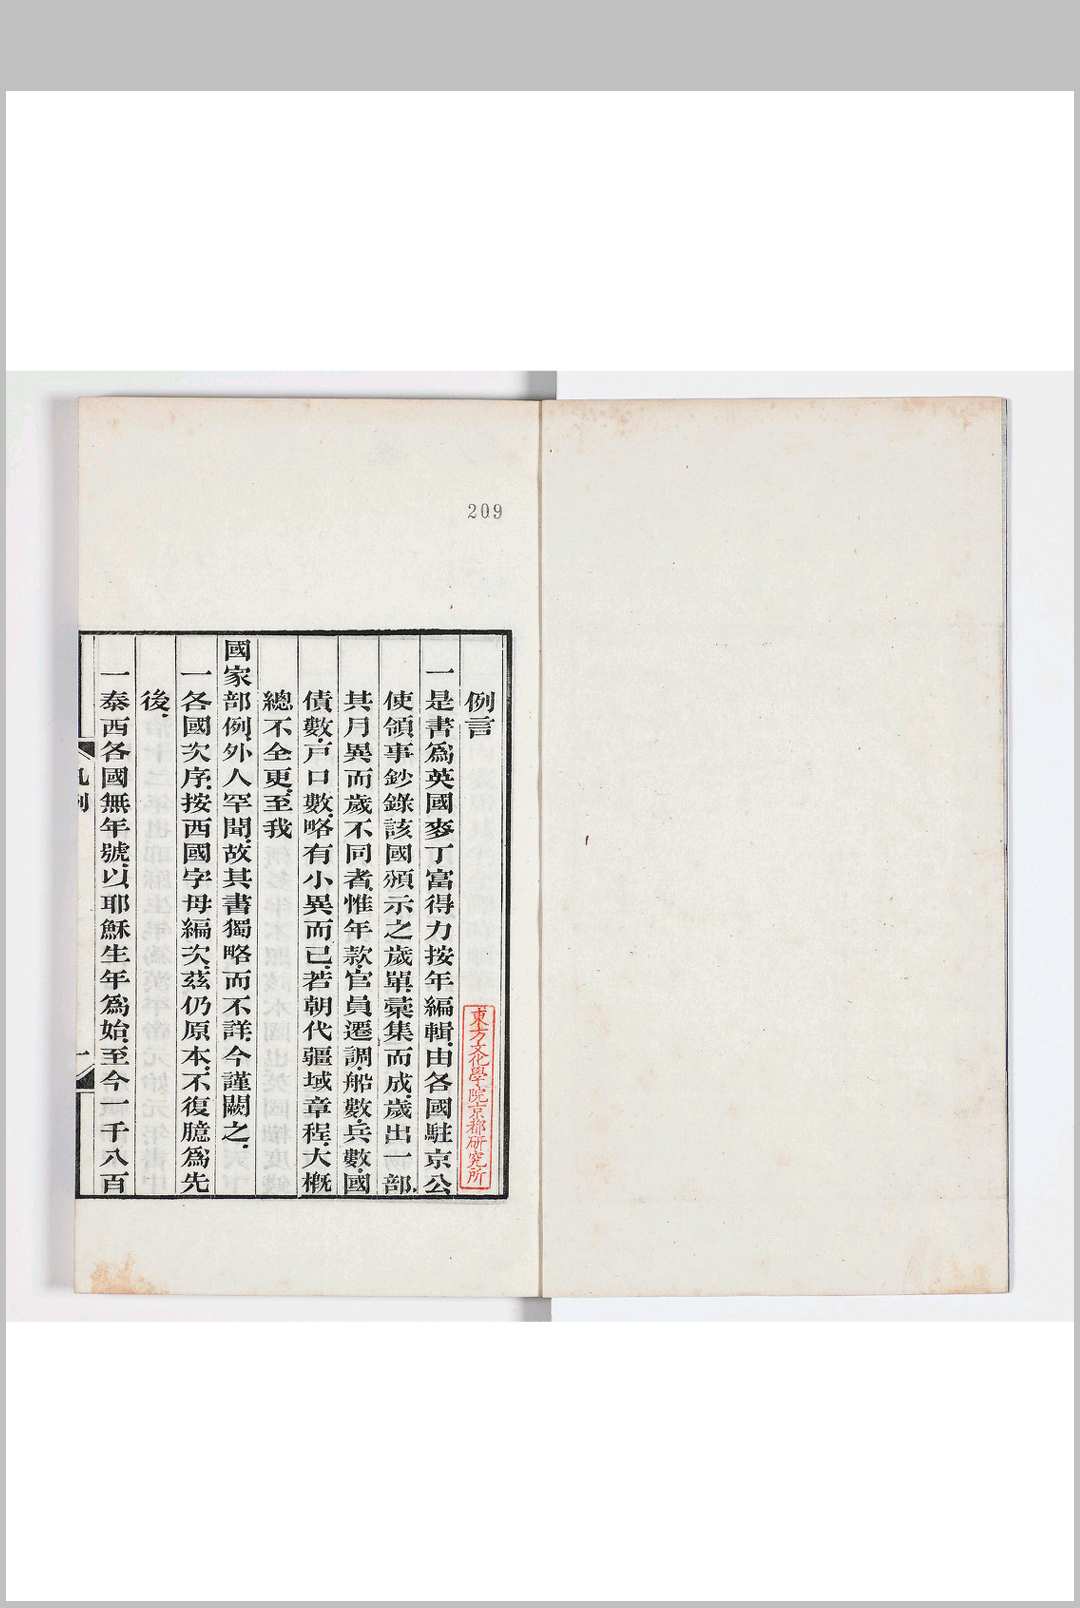 209
例言
一是書爲英國麥丁富得力按年編輯.由各國駐京公
使領事鈔錄該國頒示之歲單.彙集而成.歲出一部.
其月異而歲不同者.惟年款.官員遷調.船數.兵數.國
債數.戸口數.略有小異而已.若朝代疆域章程.大槪
總不全更.至我
國家部例.外人罕聞.故其書獨略而不詳.今謹闕之.
一各國次序.按西國字母編次.茲仍原本.不復臆爲先
後.
一泰西各國無年號.以耶穌生年爲始.至今一千八百
東方文化學院京都研究所
凡例